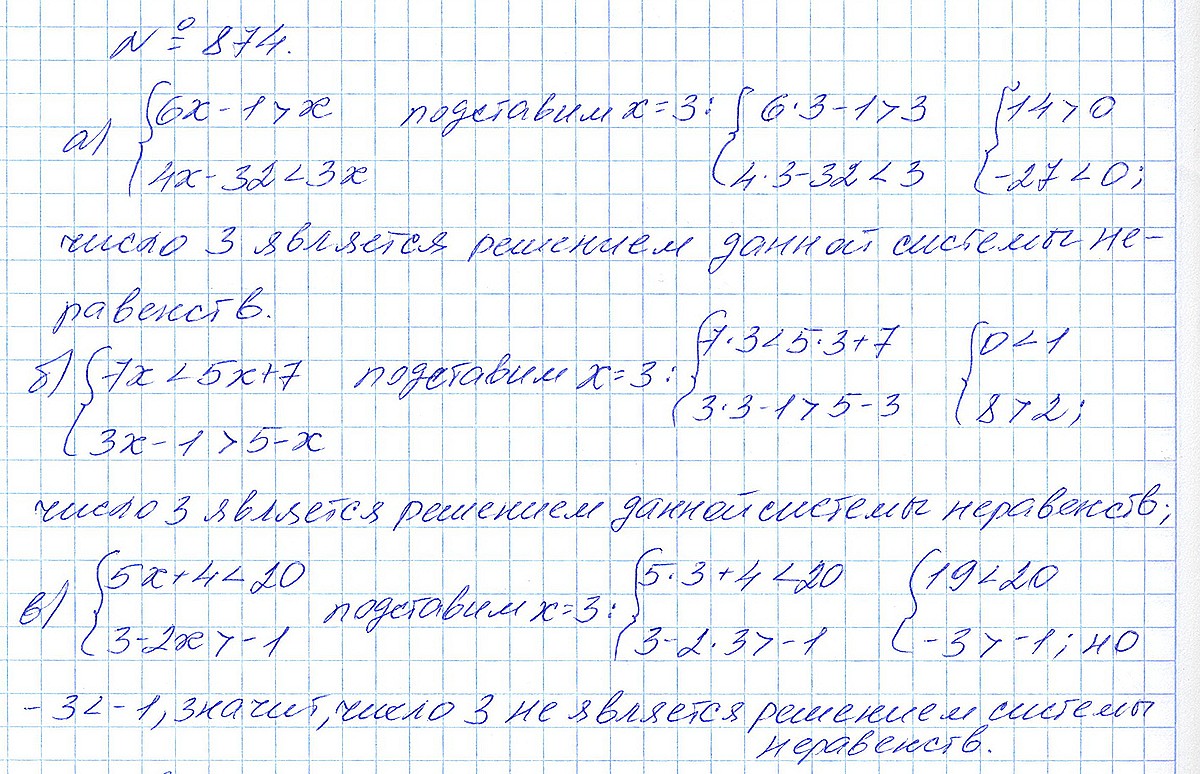 № 874.
а) { 6x - 1 > x подставим x = 3: { 6·3 - 1 > 3 { 14 > 0
4x - 32 < 3x 4·3 - 32 < 3 -27 < 0;
число 3 является решением данной системы не-
равенств.
б) { 7x < 5x + 7 подставим x = 3: { 7·3 < 5·3 + 7 { 0 < 1
3x - 1 > 5 - x 3·3 - 1 > 5 - 3 8 > 2;
число 3 является решением данной системы неравенств;
в) { 5x + 4 < 20 подставим x = 3: { 5·3 + 4 < 20 { 19 < 20
3 - 2x > -1 3 - 2·3 > -1 -3 > -1; но
-3 < -1, значит, число 3 не является решением системы
неравенств.